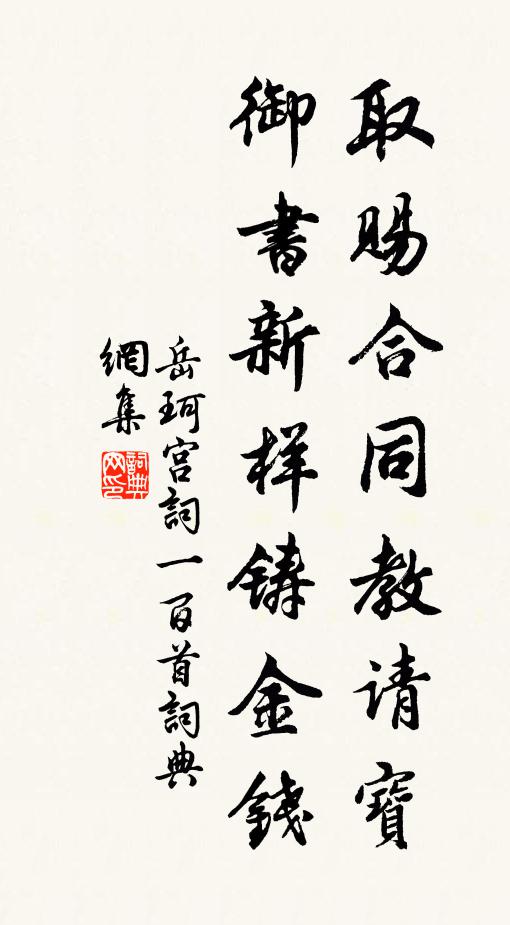 取賜合同教请寶
御書新样鑄金錢
岳珂宫詞一百首詞典
網集
詞典网印